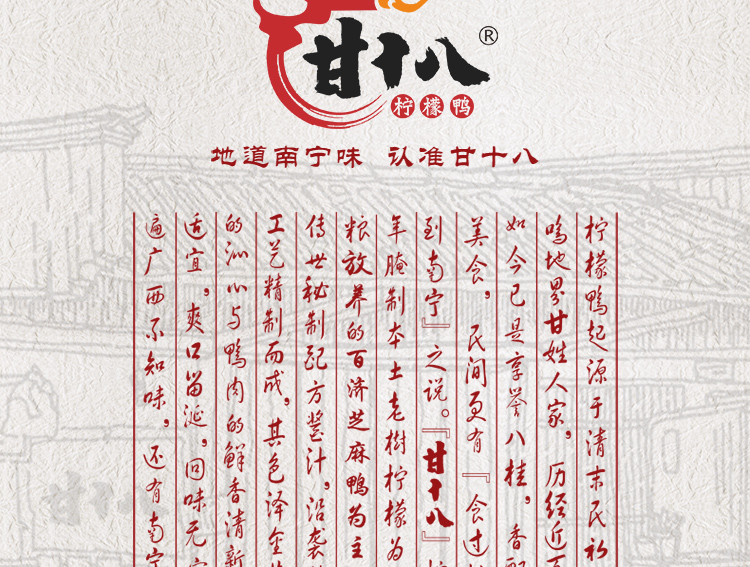 甘十八®
柠檬鸭
地道南宁味 认准甘十八
柠檬鸭起源于清末民初
鸣地界甘姓人家，历经近百
如今已是享誉八桂，香飘
美食，民间更有『食过
到南宁』之说。『甘十八』
年腌制本土老树柠檬为
粮放养的百济芝麻鸭为主
传世秘制配方酱汁，沿袭
工艺精制而成，其色泽金
的沁心与鸭肉的鲜香清新
适宜，爽口留涎，回味无
遍广西不知味，还有南宁